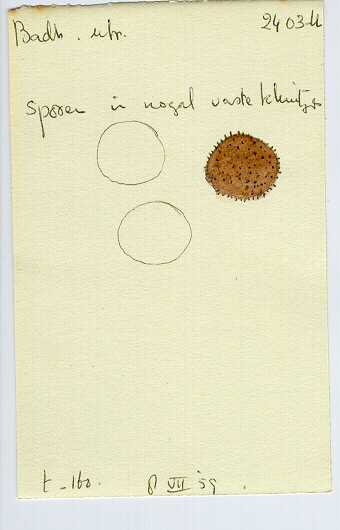 Badh. utr. 2403-M
Sporen in nogal vaste kluitjes
t-160. 8 VII '59.